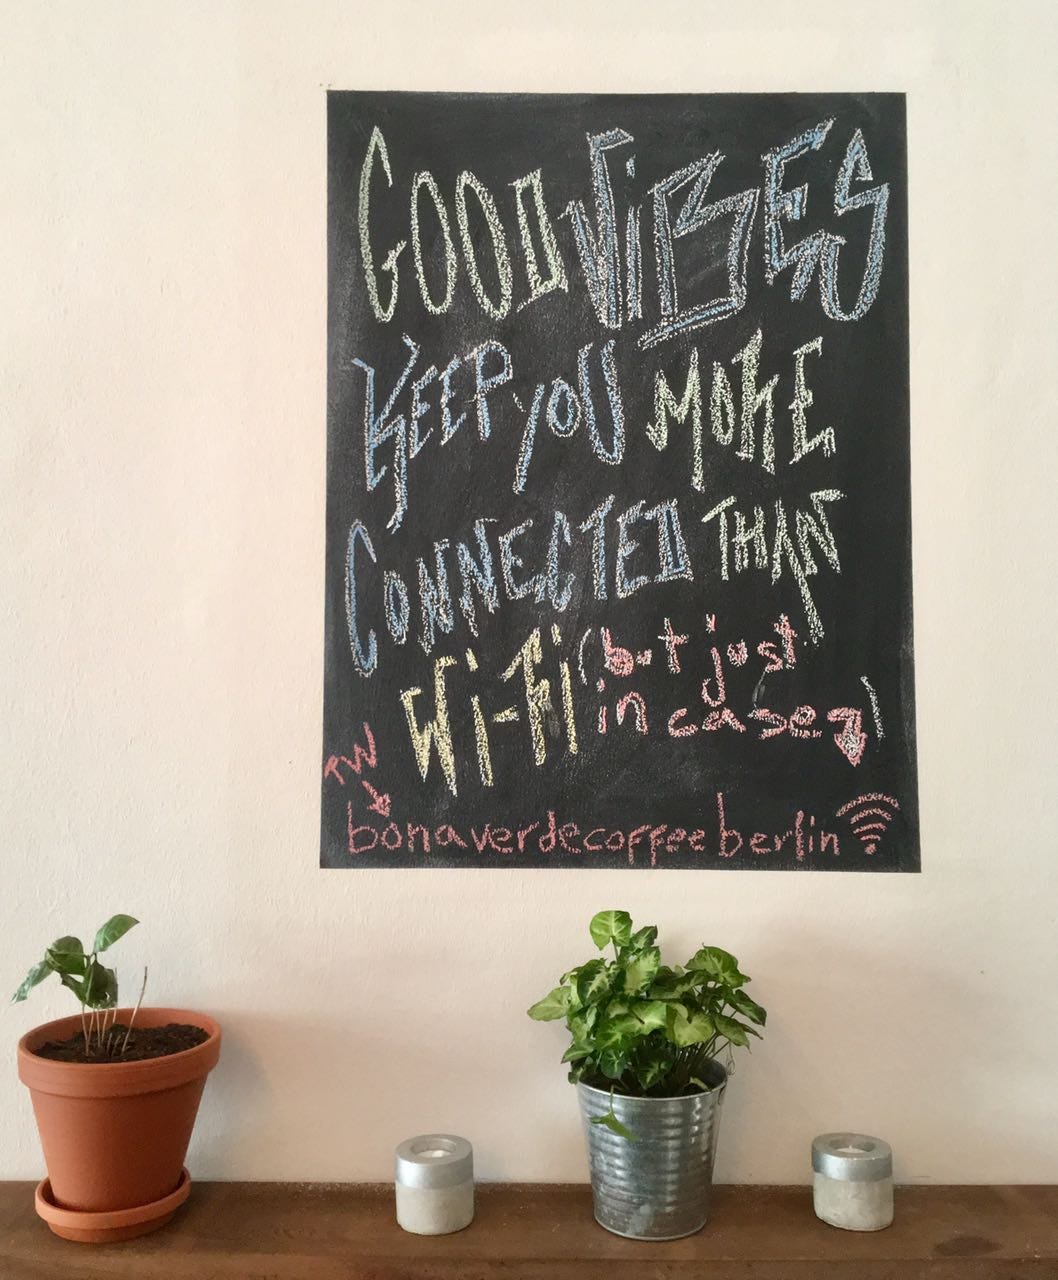 GOOD ViBES
KEEP YOU MORE
CONNECTED THAN
Wi-Fi (but just
in case)
bonaverdecoffeeberlin